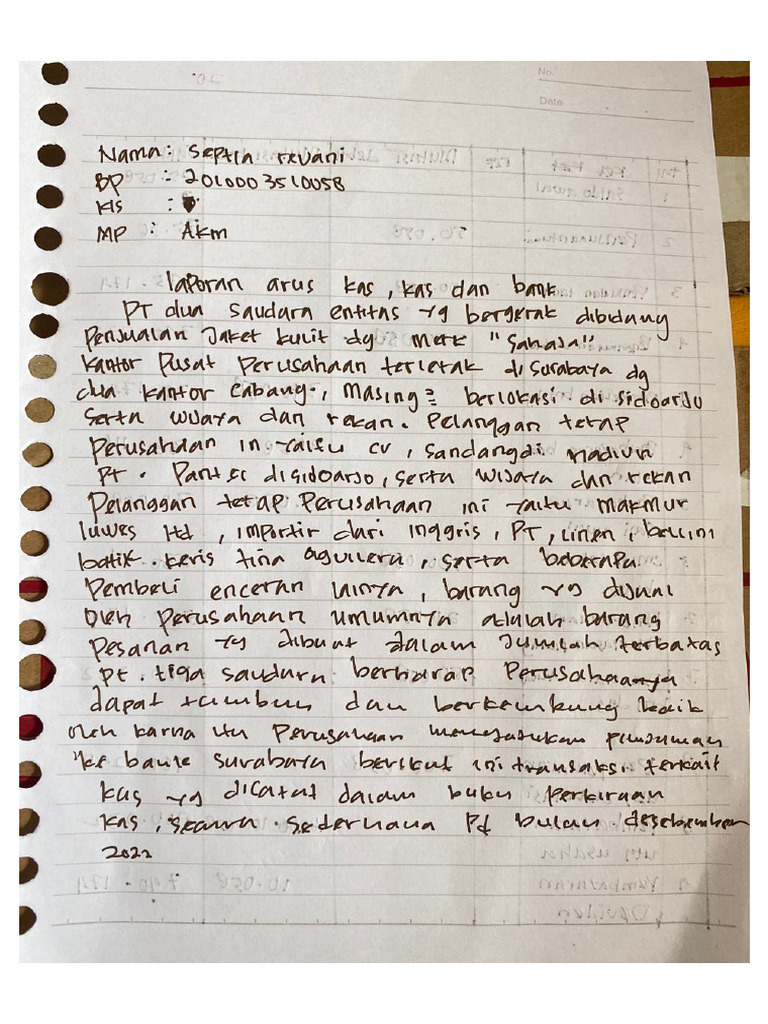 No.
Date
Nama : Septia revani
BP : 2010003510058
Kls :
MP : Akm
laporan arus kas, kas dan bank
PT dua saudara entitas yg bergerak dibidang
Penjualan Jaket kulit dg merk "Sahaja"
kantor Pusat Perusahaan terletak di Surabaya dg
dua kantor Cabang, masing2 berlokasi di Sidoarjo
serta wijaya dan rekan. Pelanggan tetap
Perusahaan in yaitu cv, sandangdi madiun
PT. Pantes disidoarjo, serta wijaya dan rekan
Pelanggan tetap Perusahaan ini yaitu makmur
luwes ltd, importir dari inggris, PT, Linen, bellini
batik keris tina aguilera, serta beberapa
Pembeli enceran lainya, barang yg dijual
Oleh perusahaan umumnya adalah barang
Pesanan yg dibuat dalam Jumlah terbatas
Pt. tiga saudara berharap Perusahaannya
dapat tumbuh dan berkembang baik
oleh karna itu Perusahaan mengajukan pinjaman
ke bank surabaya berikut ini transaksi terkait
kas yg dicatat dalam buku Perkiraan
kas, secara sederhana Pd bulan desebember
2022